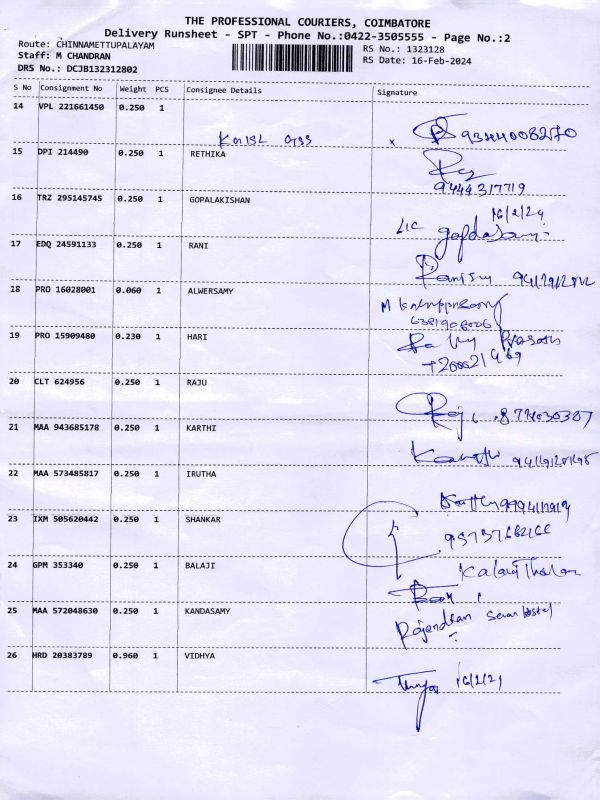 THE PROFESSIONAL COURIERS, COIMBATORE
Delivery Runsheet - SPT - Phone No.:0422-3505555 - Page No.:2
Route: CHINNAMETTUPALAYAM
RS No.: 1323128
Staff: M CHANDRAN
RS Date: 16-Feb-2024
DRS No.: DCJB132312802
S No Consignment No Weight PCS Consignee Details Signature
14 VPL 221661450 0.250 1
15 DPI 214490 0.250 1 RETHIKA
9444317719
16 TRZ 295145745 0.250 1 GOPALAKISHAN
16/2/24
LIC
17 EDQ 24591133 0.250 1 RANI
18 PRO 16028001 0.060 1 ALWERSAMY
19 PRO 15909480 0.230 1 HARI
20 CLT 624956 0.250 1 RAJU
21 MAA 943685178 0.250 1 KARTHI
22 MAA 573485817 0.250 1 IRUTHA
23 IXM 505620442 0.250 1 SHANKAR
24 GPM 353340 0.250 1 BALAJI
25 MAA 572048630 0.250 1 KANDASAMY
Rajendran
26 HRD 20383789 0.960 1 VIDHYA